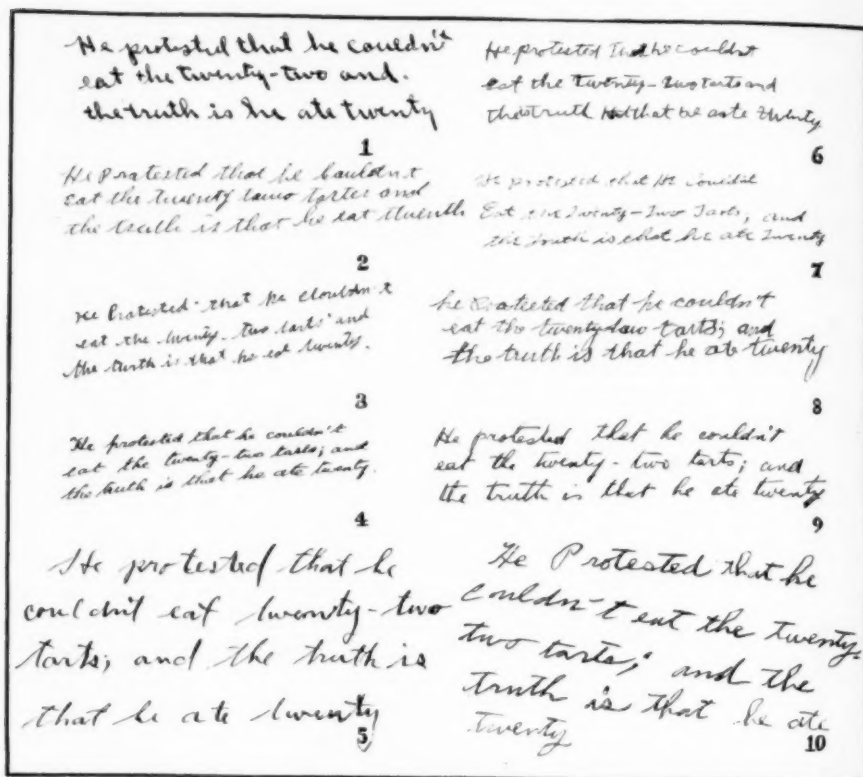 He protested that he couldn't
eat the twenty-two and.
the truth is he ate twenty
1
He Pratested that he bauldn't
eat the twenty tawo tartes and
the truth is that he eat tluenth
2
He Protested that he clouldn't
eat the twenty-two tarts and
the turth is that he eat twenty.
3
He protested that he couldn't
eat the twenty-two tarts; and
the truth is that he ate twenty.
4
He protested that he
couldn't eat twenty-two
tarts; and the truth is
that he ate twenty
5
He protested that he couldnt
eat the twenty-two tarts and
the truth that he ate twenty
6
He protested that He
Eat the Twenty-Two Tarts, and
the Truth is that he ate Twenty
7
he that he couldn't
eat the twenty-taw tarts; and
the truth is that he ate twenty
8
He protested that he couldn't
eat the twenty-two tarts; and
the truth is that he ate twenty
9
He Protested that he
couldn't eat the twenty-
two tarts; and the
truth is that he ate
twenty
10